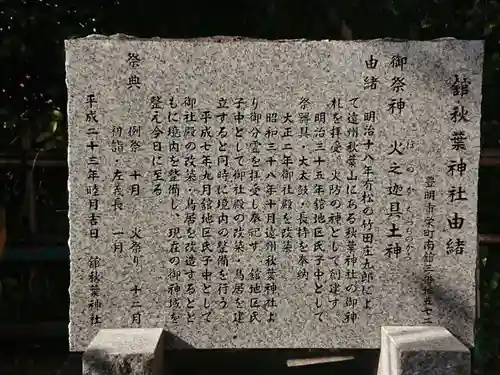 舘秋葉神社由緒
豊明市栄町南舘三番地五七二
御祭神　火之迦具土神
ほのかぐつちのかみ
由緒
明治十八年有松の竹田庄九郎によ
て遠州秋葉山にある秋葉神社の御神
札を拝受。火防の神として創建す
明治三十五年舘地区氏子中として
祭器具・大太鼓・長持を奉納
大正二年御社殿を改築
昭和三十八年十月遠州秋葉神社よ
り御分霊を拝受し奉祀す。舘地区氏
子中として御社殿の改築・鳥居を建
立すると同時に境内の整備を行う
平成七年九月舘地区氏子中として
御社殿の改築・鳥居を改造するとと
もに境内を整備し、現在の御神域を
整え今日に至る
祭典
例祭　十月　火祭り　十二月
初詣・左義長　一月
平成二十三年睦月吉日　舘秋葉神社